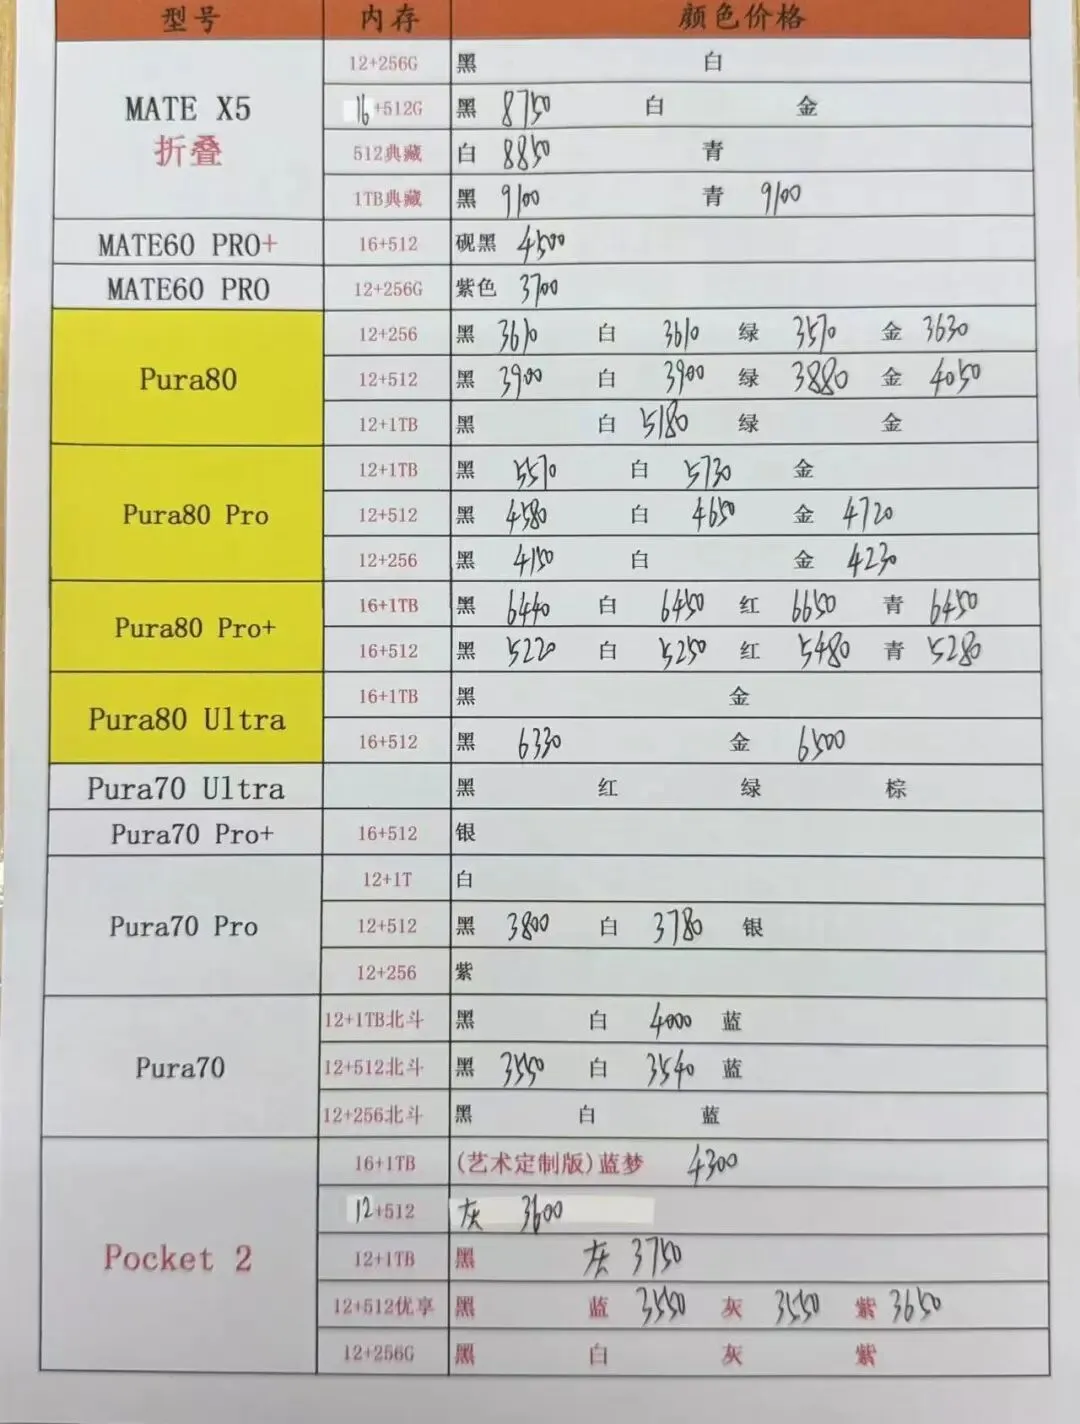 型号 内存 颜色价格
12+256G 黑 白
MATE X5 16+512G 黑 8750 白 金
折叠 512典藏 白 8850 青
1TB典藏 黑 9100 青 9100
MATE60 PRO+ 16+512 砚黑 4500
MATE60 PRO 12+256G 紫色 3700
12+256 黑 3610 白 3610 绿 3570 金 3630
Pura80 12+512 黑 3900 白 3900 绿 3880 金 4050
12+1TB 黑 白 5180 绿 金
12+1TB 黑 5570 白 5730 金
Pura80 Pro 12+512 黑 4580 白 4650 金 4720
12+256 黑 4150 白 金 4230
Pura80 Pro+ 16+1TB 黑 6440 白 6450 红 6650 青 6450
16+512 黑 5220 白 5250 红 5480 青 5280
Pura80 Ultra 16+1TB 黑 金
16+512 黑 6330 金 6500
Pura70 Ultra 黑 红 绿 棕
Pura70 Pro+ 16+512 银
12+1T 白
Pura70 Pro 12+512 黑 3800 白 3780 银
12+256 紫
12+1TB北斗 黑 白 4000 蓝
Pura70 12+512北斗 黑 3550 白 3540 蓝
12+256北斗 黑 白 蓝
16+1TB (艺术定制版)蓝梦 4300
12+512 灰 3600
Pocket 2 12+1TB 黑 灰 3750
12+512优享 黑 蓝 3550 灰 3550 紫 3650
12+256G 黑 白 灰 紫